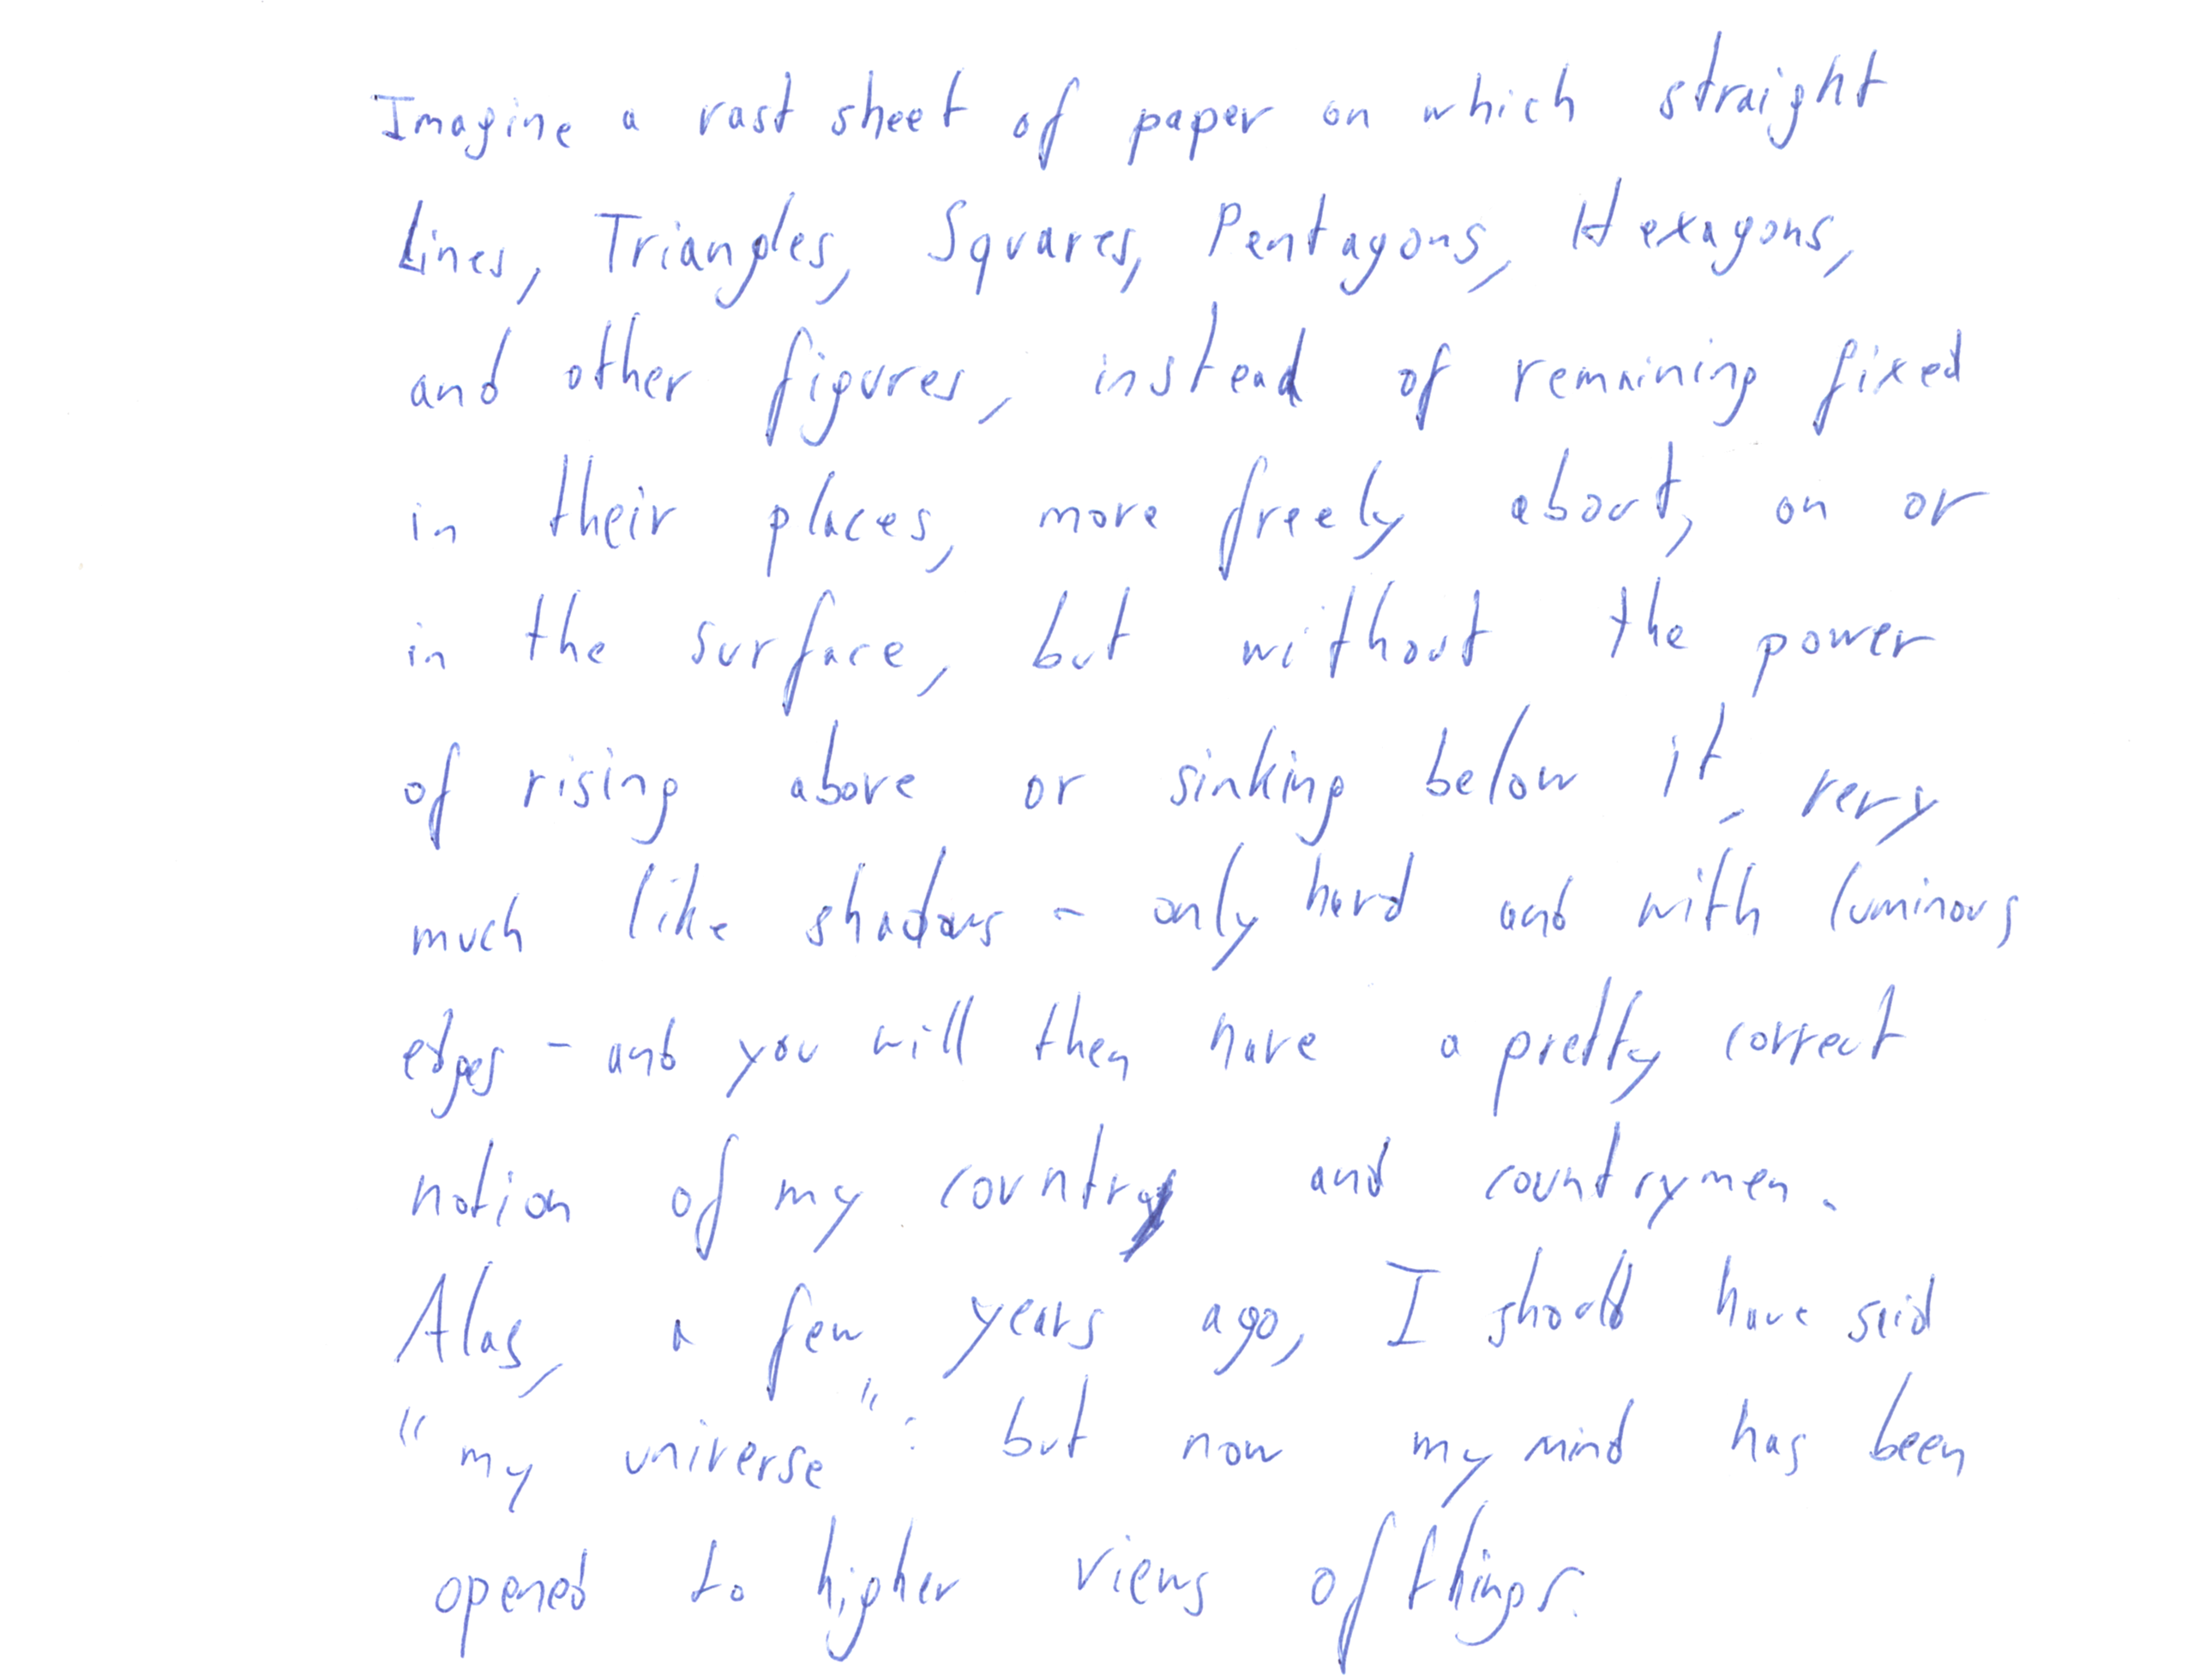 Imagine a vast sheet of paper on which straight
Lines, Triangles, Squares, Pentagons, Hexagons,
and other figures, instead of remaining fixed
in their places, move freely about, on or
in the surface, but without the power
of rising above or sinking below it, very
much like shadows - only hard and with luminous
edges - and you will then have a pretty correct
notion of my country and countrymen.
Alas, a few years ago, I should have said
"my universe": but now my mind has been
opened to higher views of things.